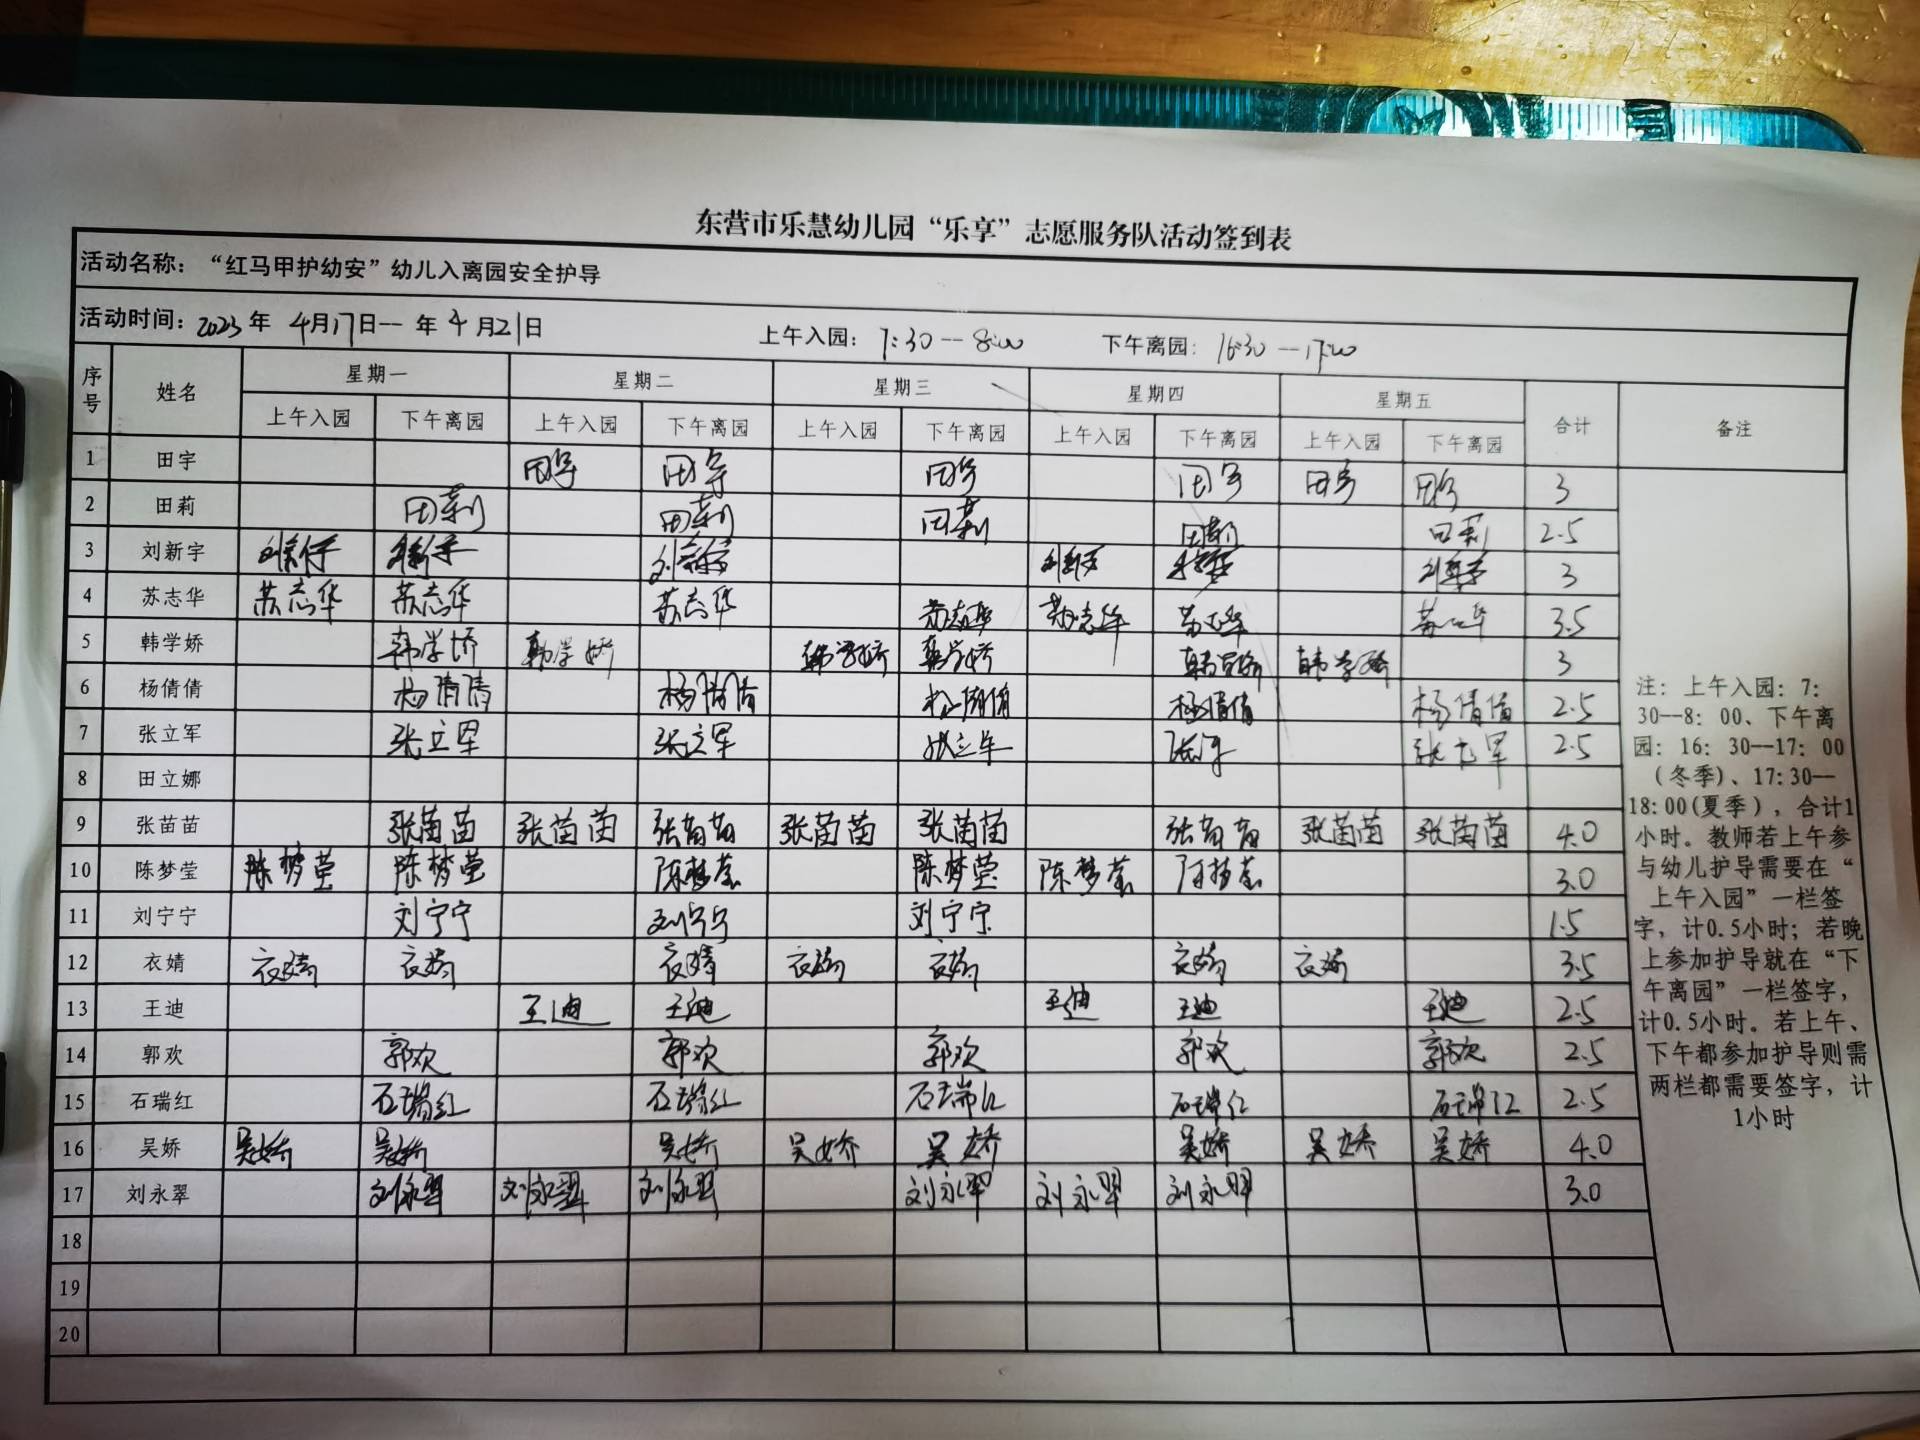 东营市乐慧幼儿园“乐享”志愿服务队活动签到表
活动名称：“红马甲护幼安”幼儿入离园安全护导
活动时间：2023年 4月17日--年4月21日 上午入园：7:30--8:00 下午离园：16:30--17:00
序号 姓名 星期一 星期二 星期三 星期四 星期五 合计 备注
上午入园 下午离园 上午入园 下午离园 上午入园 下午离园 上午入园 下午离园 上午入园 下午离园
1 田宇 田宇 田宇 田宇 田宇 田宇 田宇 3
2 田莉 田莉 田莉 田莉 田莉 田莉 2.5
3 刘新宇 刘新宇 刘新宇 刘新宇 刘新宇 刘新宇 刘新宇 3
4 苏志华 苏志华 苏志华 苏志华 苏志华 苏志华 苏志华 苏志华 3.5
5 韩学娇 韩学娇 韩学娇 韩学娇 韩学娇 韩学娇 韩学娇 3
6 杨倩倩 杨倩倩 杨倩倩 杨倩倩 杨倩倩 杨倩倩 2.5
7 张立军 张立军 张立军 张立军 张立军 张立军 2.5
8 田立娜
9 张苗苗 张苗苗 张苗苗 张苗苗 张苗苗 张苗苗 张苗苗 张苗苗 张苗苗 4.0
10 陈梦莹 陈梦莹 陈梦莹 陈梦莹 陈梦莹 陈梦莹 陈梦莹 3.0
11 刘宁宁 刘宁宁 刘宁宁 刘宁宁 1.5
12 衣婧 衣婧 衣婧 衣婧 衣婧 衣婧 衣婧 衣婧 3.5
13 王迪 王迪 王迪 王迪 王迪 王迪 2.5
14 郭欢 郭欢 郭欢 郭欢 郭欢 郭欢 2.5
15 石瑞红 石瑞红 石瑞红 石瑞红 石瑞红 石瑞红 2.5
16 吴娇 吴娇 吴娇 吴娇 吴娇 吴娇 吴娇 吴娇 吴娇 4.0
17 刘永翠 刘永翠 刘永翠 刘永翠 刘永翠 刘永翠 刘永翠 3.0
18
19
20
注：上午入园：7:
30--8：00、下午离
园：16：30--17：00
(冬季)、17:30--
18:00(夏季)，合计1
小时。教师若上午参
与幼儿护导需要在“
上午入园”一栏签
字，计0.5小时；若晚
上参加护导就在“下
午离园”一栏签字，
计0.5小时。若上午、
下午都参加护导则需
两栏都需要签字，计
1小时